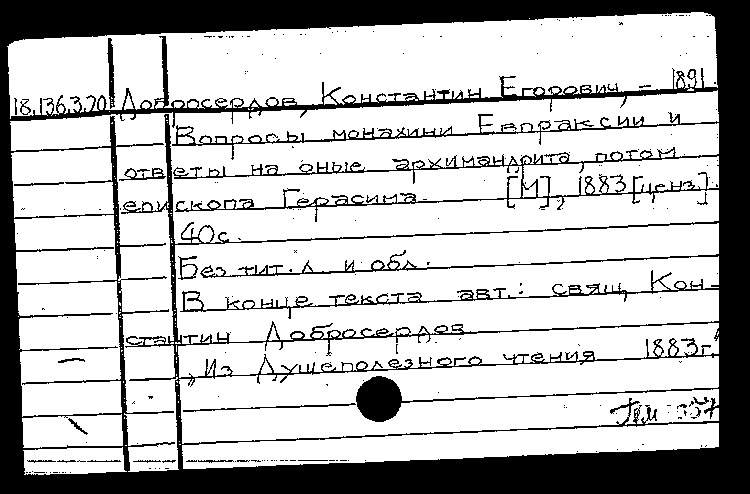 18.136.3.70 Добросердов, Константин Егорович, – 1891.
Вопросы монахини Евпраксии и
ответы на оные архимандрита, потом
епископа Герасима. [М], 1883 [ценз].
40с.
Без тит. л. и обл.
В конце текста авт.: свящ. Кон-
стантин Добросердов
„Из Душеполезного чтения 1883г."